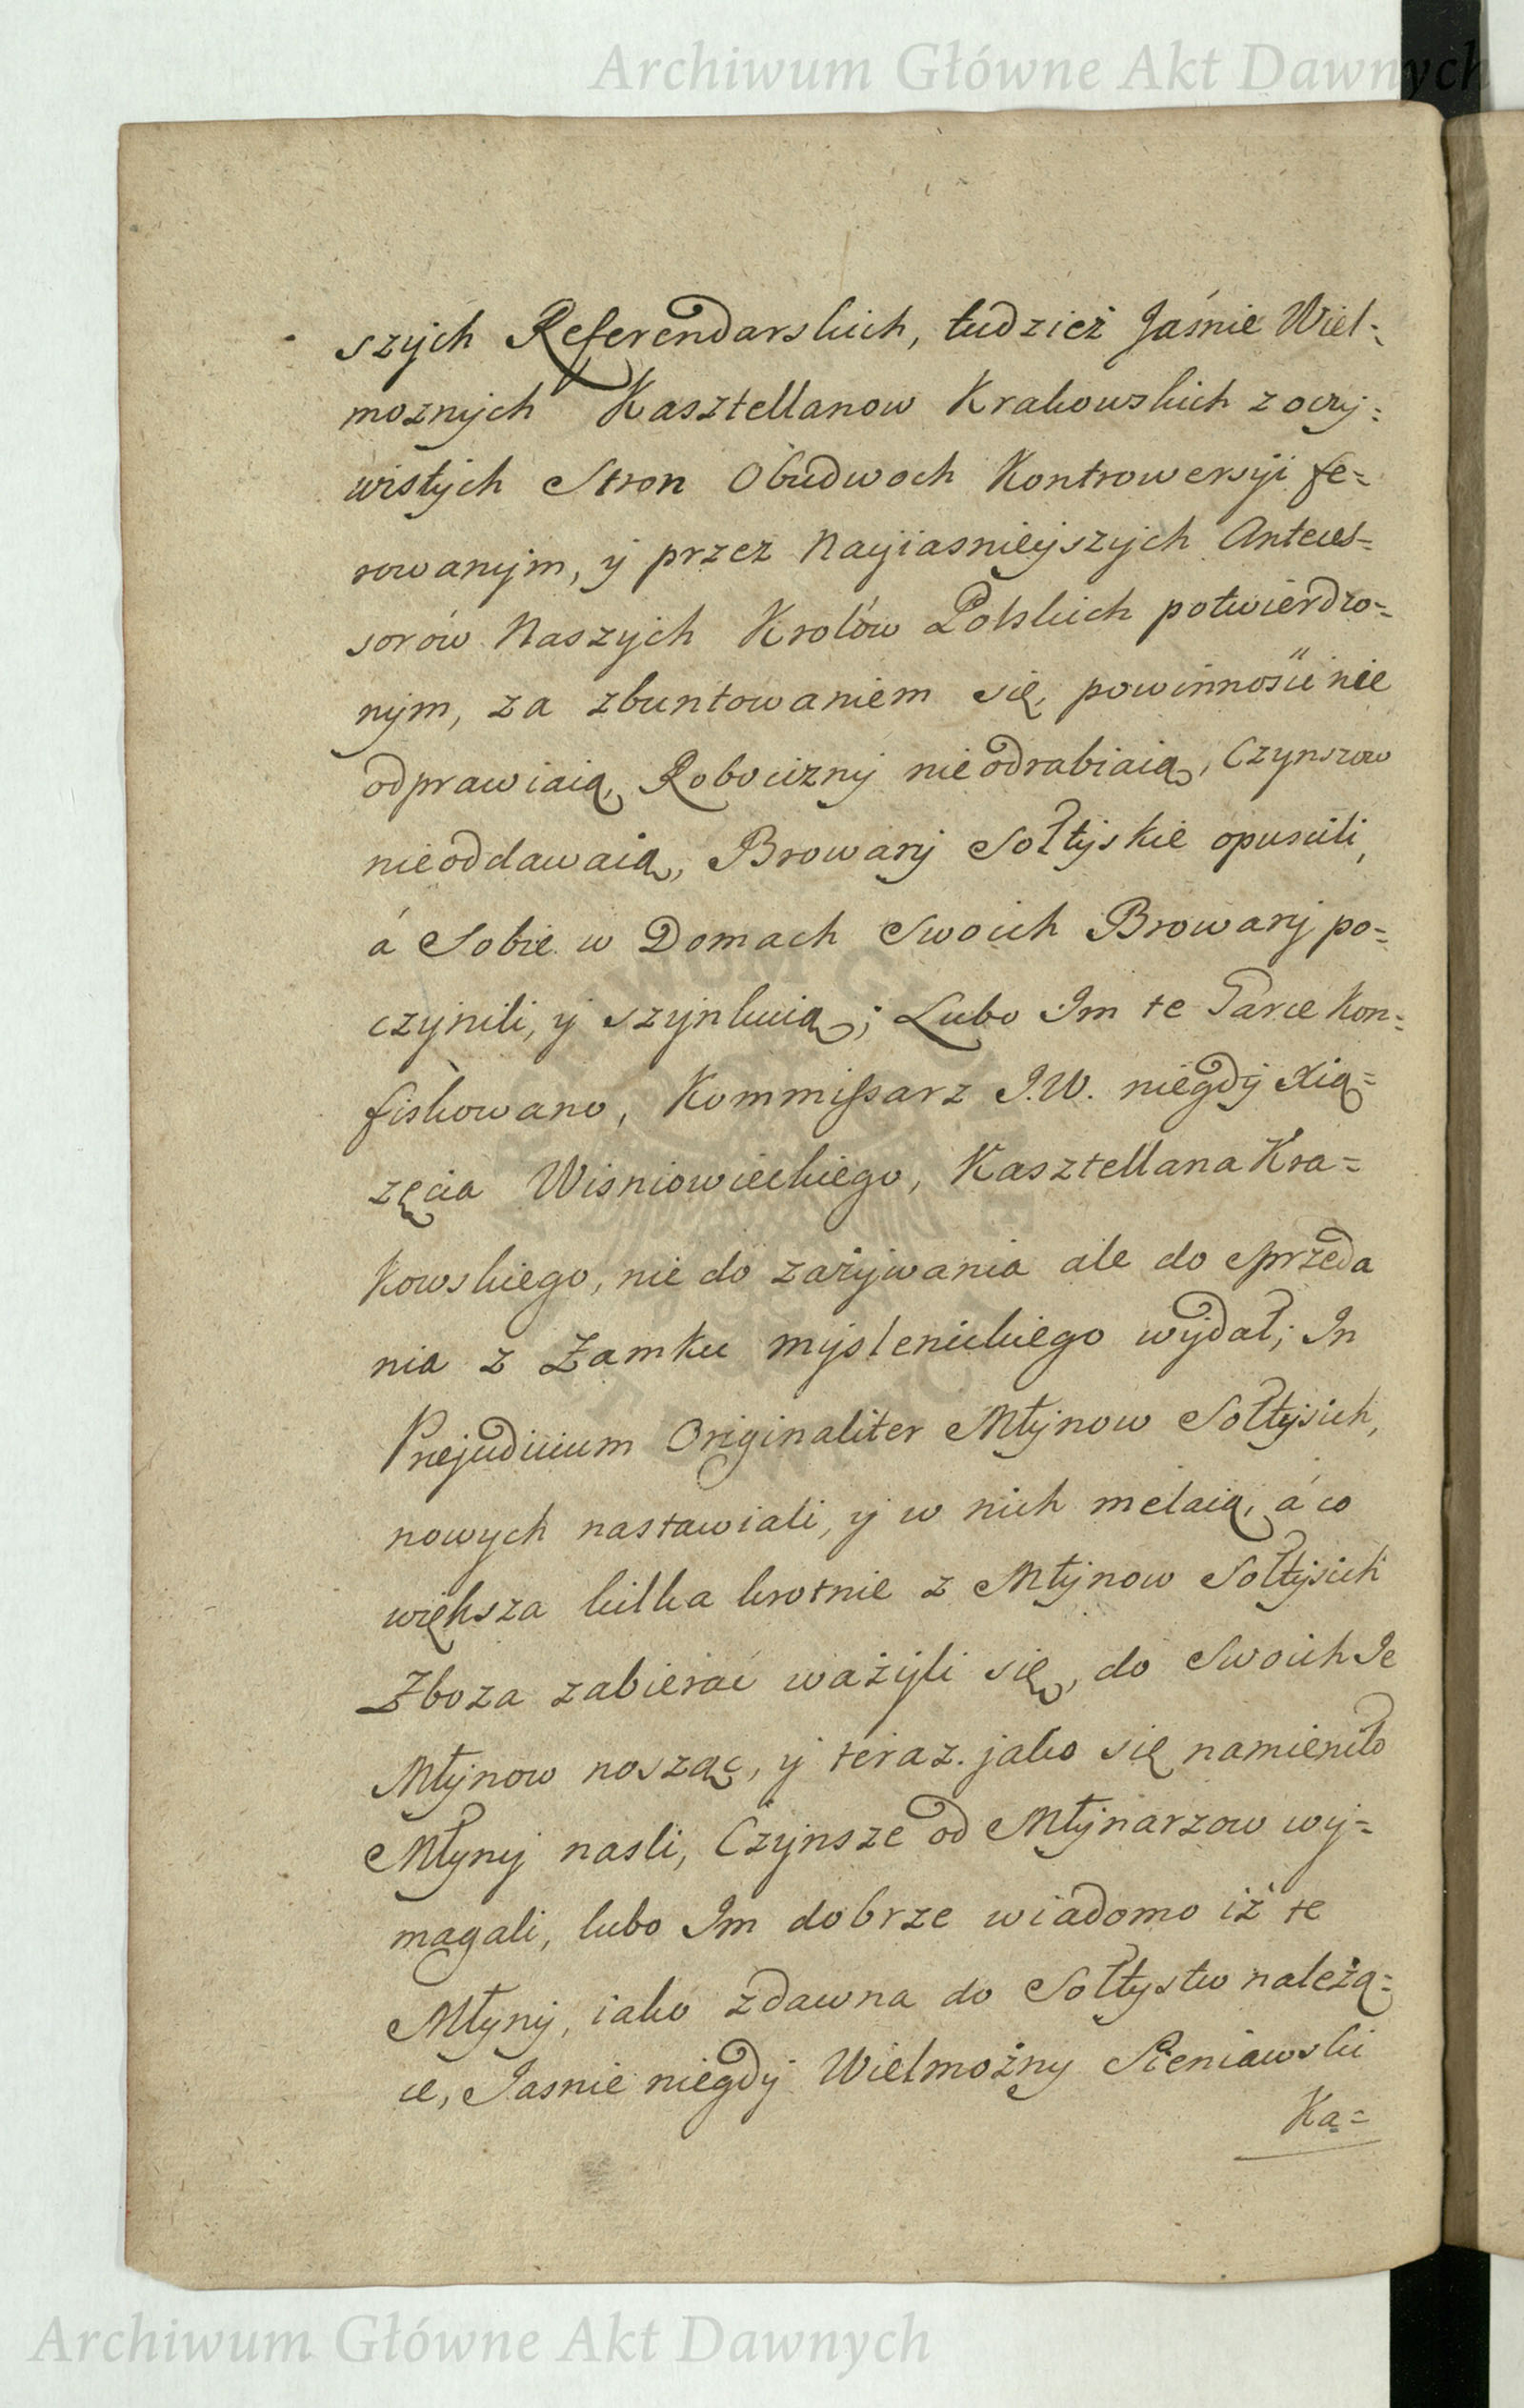 Archiwum Główne Akt Dawnych
szych Referendarskich, tudzież Jaśnie Wiel=
moznych Kasztellanow Krakowskich z oczy=
wistych Stron Obudwoch Kontrowersyi fe=
rowanym, y przez Nayiasnieyszych Anteces=
sorów Naszych Krolów Polskich potwierdzo=
nym, za zbuntowaniem się, powinnosci nie
odprawiaią, Robocizny nieodrabiaią, Czynszow
nieoddawaią, Browary Sołtyskie opuscili,
á Sobie w Domach Swoich Browary po=
czynili, y szynkuią; Lubo Im te Garce kon=
fiskowano, Kommissarz J.W. niegdy Xią=
zęcia Wisniowieckiego, Kasztellana Kra=
kowskiego, nie do zażywania ale do sprzeda
nia z Zamku myslenickiego wydał; In
Prejudicium Originaliter Młynow Sołtysich,
nowych nastawiali, y w nich melaią, á co
większa kilka krotnie z Młynow Sołtysich
Zboza zabierać ważyli się, do Swoich Je
Młynow nosząc, y teraz. jako się namieniło
Młyny nasli, Czynsze od Młynarzow wy=
magali, lubo Im dobrze wiadomo iż te
Młyny, iako zdawna do Sołtystw należą=
ce, Jasnie niegdy Wielmożny Sieniawski
Ka=
Archiwum Główne Akt Dawnych